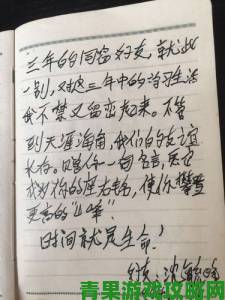 三年的同窗好友，就此
一别，对这三年中的学习生活
我不禁又留恋起来。不管
到天涯海角，我们的友谊
长存。赠你一句名言，愿它
成为你的座右铭，使你攀登
更高的"山峰"！
时间就是生命！
好友：沈
青果游戏攻略网